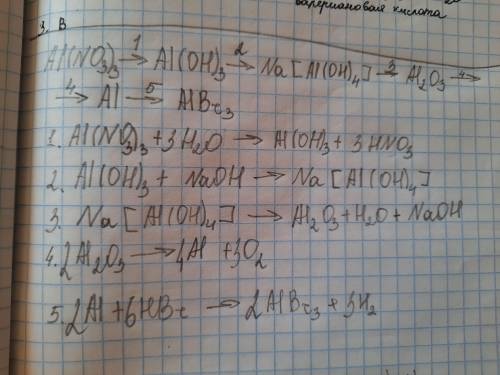 валериановая кислота
3. В
Al(NO3)3 —1→ Al(OH)3 —2→ Na[Al(OH)4] —3→ Al2O3 —4→
—4→ Al —5→ AlBr3
1. Al(NO3)3 + 3H2O → Al(OH)3 + 3HNO3
2. Al(OH)3 + NaOH → Na[Al(OH)4]
3. Na[Al(OH)4] → Al2O3 + H2O + NaOH
4. 2Al2O3 → 4Al + 3O2
5. 2Al + 6HBr → 2AlBr3 + 3H2